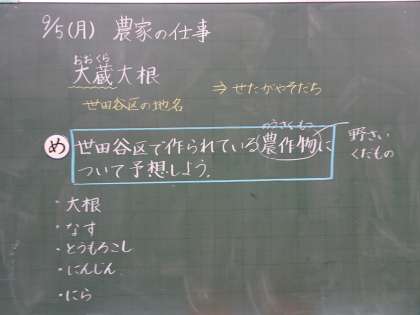 9/5(月) 農家の仕事
おおくら
大蔵大根
⇒ せたがやそだち
世田谷区の地名
のうさくもつ
め 世田谷区で作られている農作物に
ついて予想しよう.
野さい
くだもの
・大根
・なす
・とうもろこし
・にんじん
・にら